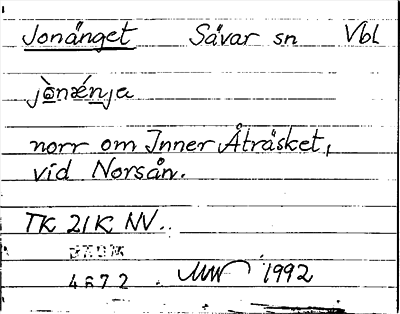 Jonänget Sävar sn Vbl
jònǽnja
norr om Inner Åträsket,
vid Norsån.
TK 21K NV.
4672 1992